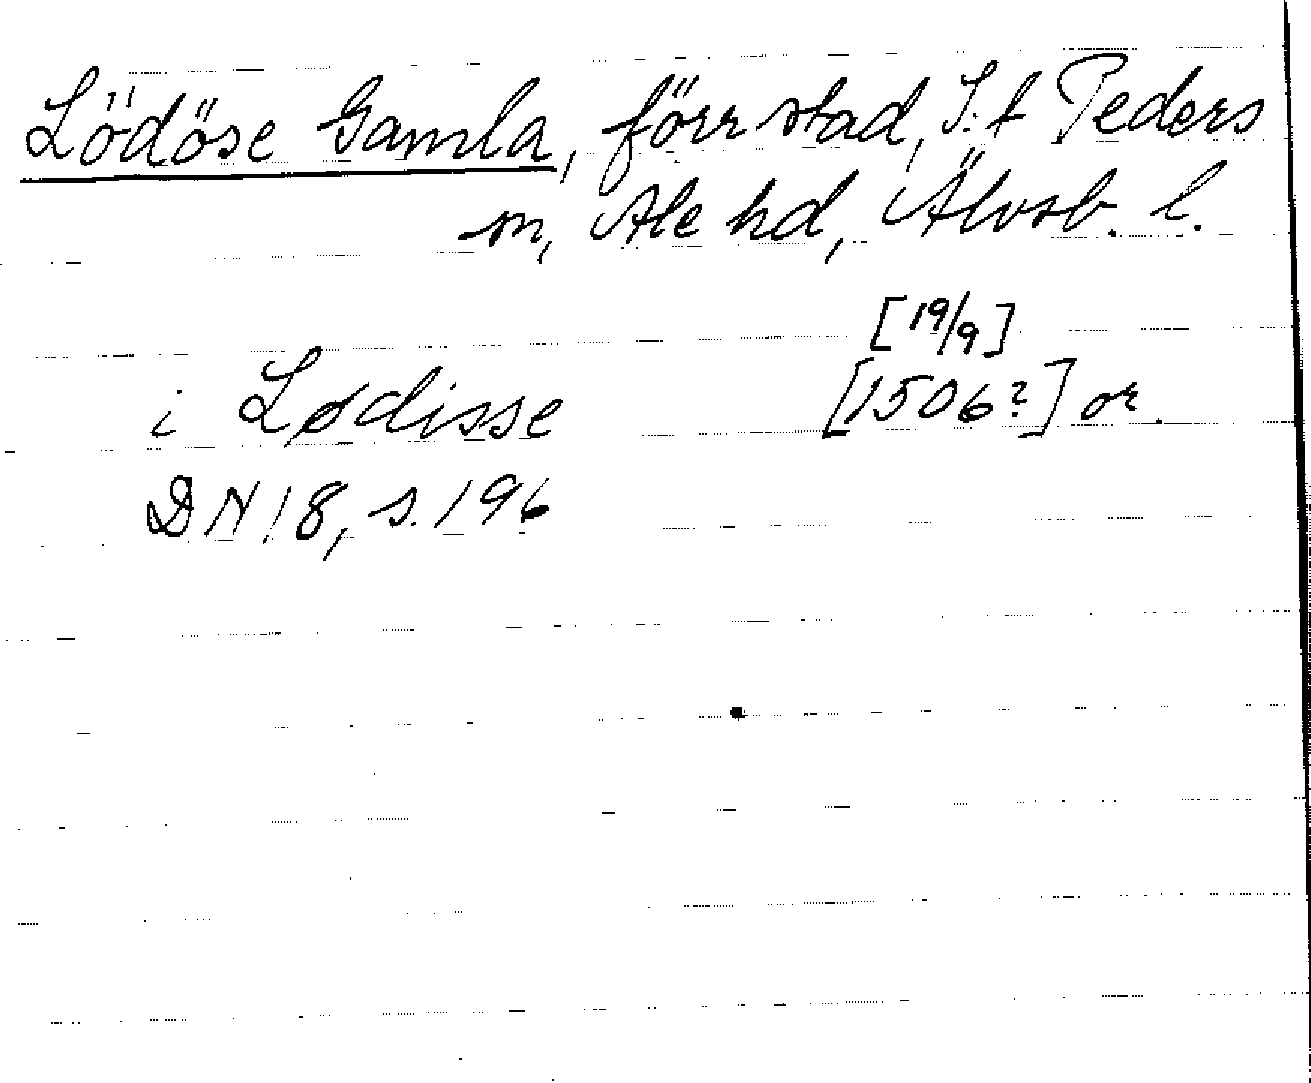 Lödöse Gamla, förr stad, S:t Peders
sn, Ale hd, Älvsb. l.
[19/9]
i Lødisse [1506?] or.
DN 18, s. 196